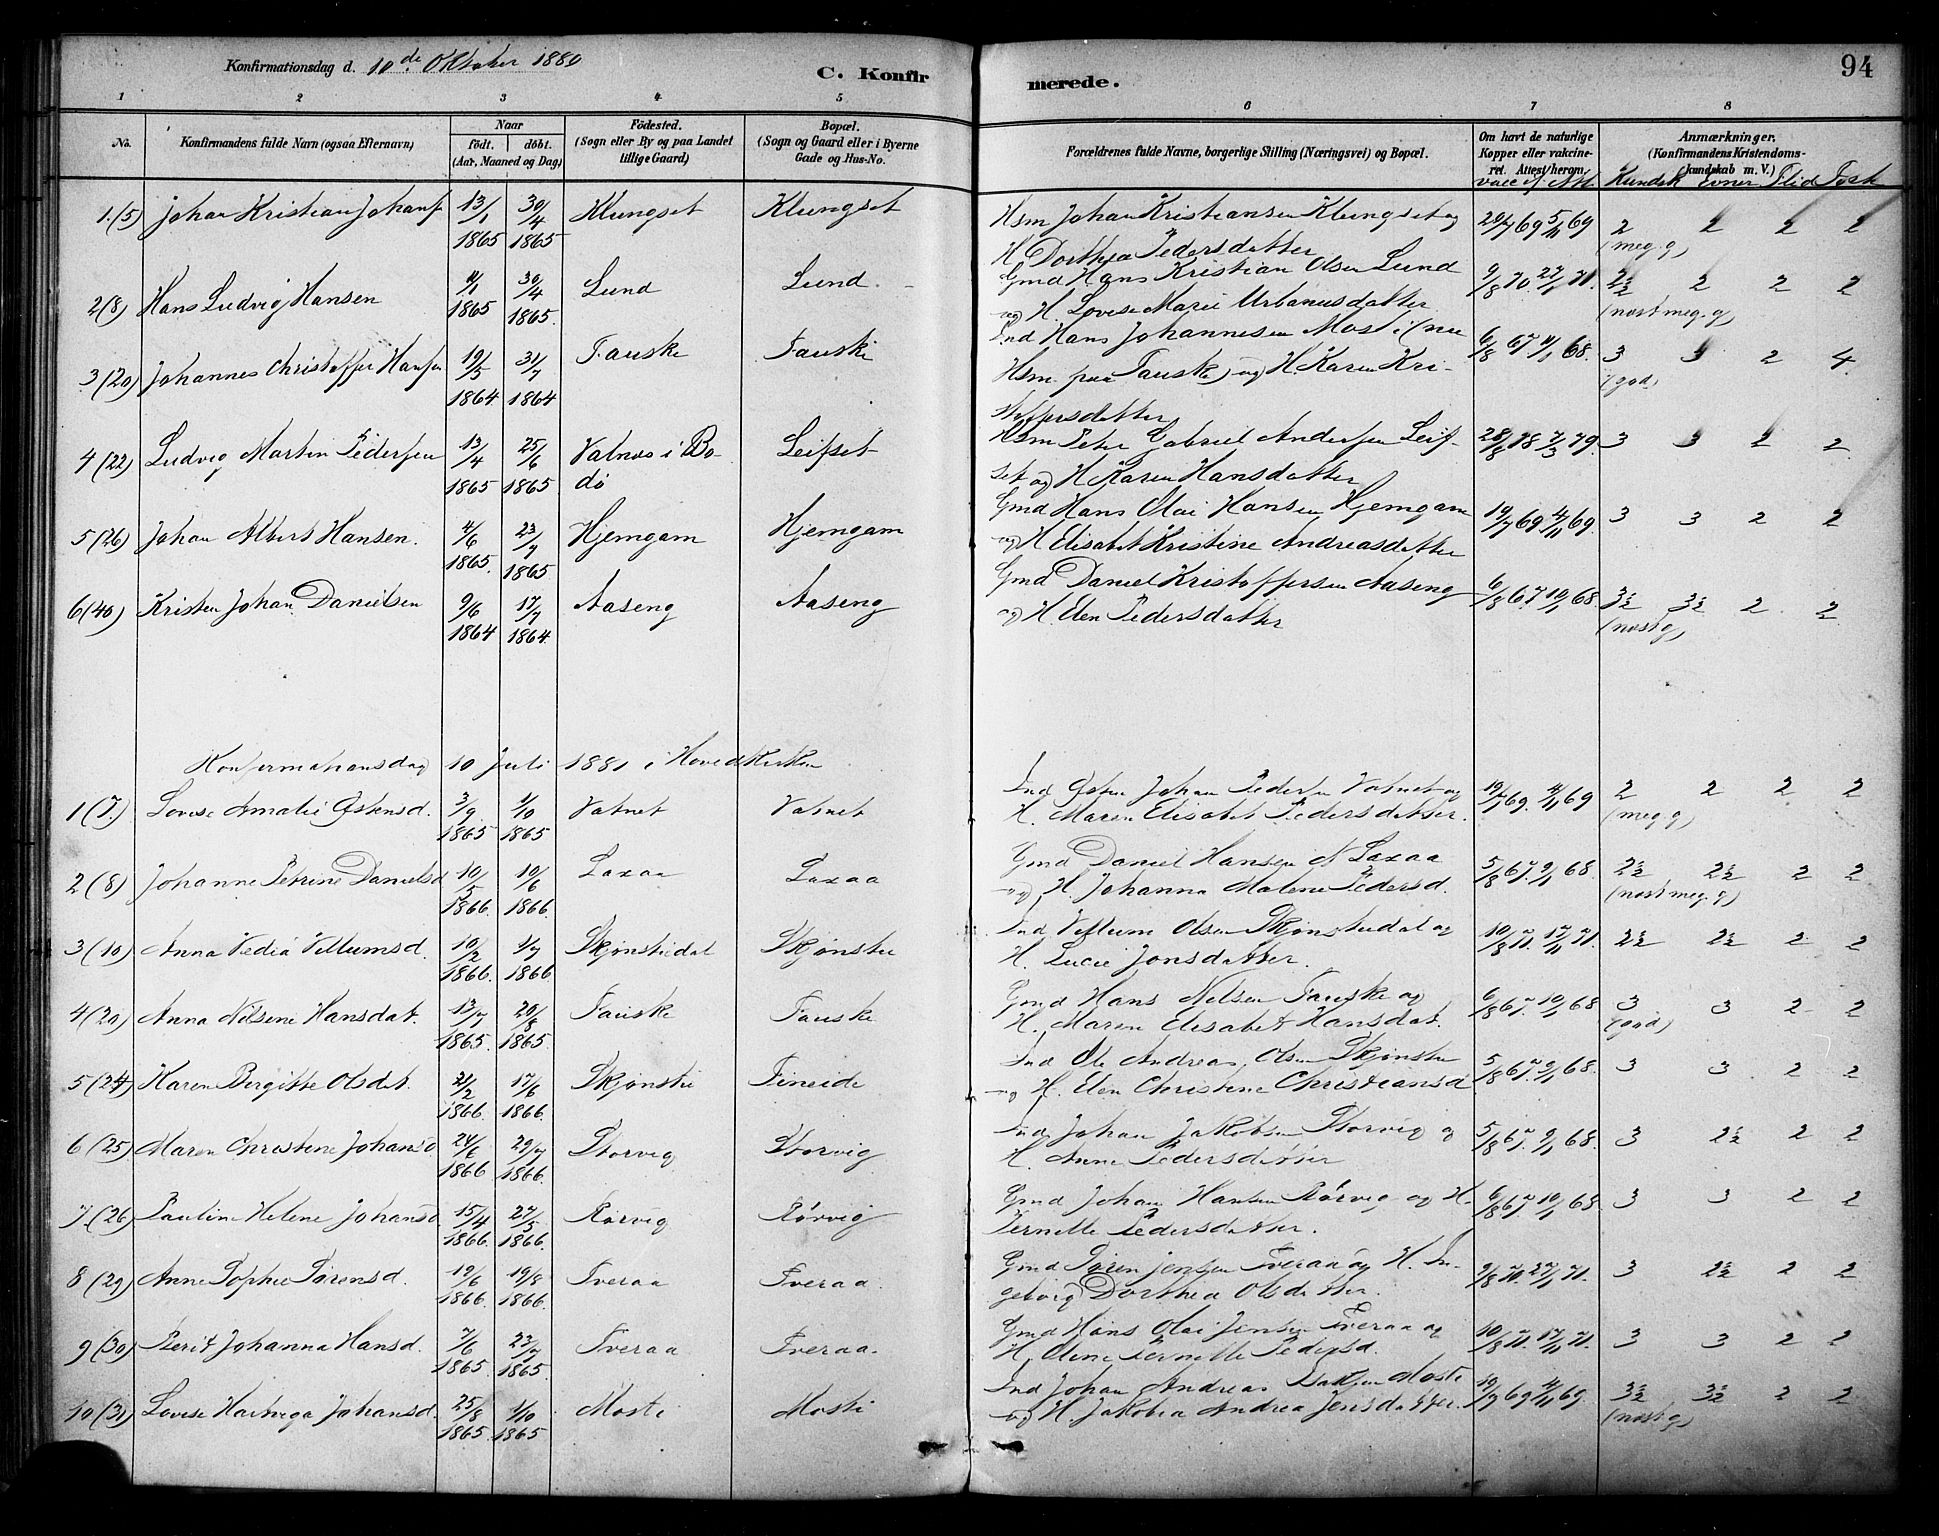 94
Konfirmationsdag d. 10de Oktober 1880
C. Konfirmerede.
1 2 3 4 5 6 7 8
No. Konfirmandens fulde Navn (ogsaa Efternavn) Naar födt. döbt. (Aar, Maaned og Dag) Födested. (Sogn eller By og paa Landet tillige Gaard) Bopæl. (Sogn og Gaard eller i Byerne Gade og Hus-No. Forældrenes fulde Navne, borgerlige Stilling (Næringsvei) og Bopæl. Om havt de naturlige Kopper eller vakcineret. Attest herom. Anmærkninger. (Konfirmandens Kristendomskundskab m. V.)
Kundsk Evner Flid
1.(5) Johan Kristian Johans 13/1 1865 30/4 1865 Klungset Klungset Hsm Johan Kristiansen Klungset og 20/7 69 5/11 69 2 2 2 2
H Dorthea Pedersdatter (meg. g)
2(8) Hans Ludvig Hansen 11/1 1865 30/4 1865. Lund Lund. Gmd Hans Kristian Olsen Lund 9/8 70. 27/1 71. 2½ 2 2 2
og H. Lovise Marie Urbanusdatter (næst meg. g)
3(20) Johannes Christoffer Hansen 19/5 1864 31/7 1864 Fauske Fauske Ind Hans Johannesen Mosti (nu 6/8 67 11/1 68. 3 3 2 4.
Hsm. paa Fauske) og H. Karen Kri- (god)
stoffersdatter
4(22) Ludvig Martin Pedersen 13/4 1865 25/6 1865 Valnes i Bo- Leifset Hsm Peter Gabriel Andersen Leif- 28/8 78 7/3 79. 3 3 2 2.
dö set og H Karen Hansdatter
5(26) Johan Albert Hansen. 4/6 1865. 23/7 1865 Hjemgam Hjemgam Gmd Hans Olai Hansen Hjemgam 19/7 69 4/11 69. 3 3 2 2
og H Elisabet Kristine Andreasdatter
6(40) Kristen Johan Danielsen 9/6 1864 17/7 1864 Aaseng Aaseng Gmd Daniel Kristoffersen Aaseng 6/8 67. 10/1 68. 3½ 3½ 2 2
og H. Elen Pedersdatter (næst g)
Konfirmationsdag 10 Juli 1881 i Hovedkirken
1(7.) Lovise Amalie Østensd. 3/9. 1865 1/10 1865 Vatnet Vatnet Ind Østen Johan Peders Vatnet og 19/7 69 4/11 69 2 2 2 2
H. Maren Elisabet Pedersdatter. (meg. g)
2(8) Johanne Petrine Danielsd 10/5 1866. 10/6 1866. Laxaa Laxaa Gmd Daniel Hansen N Laxaa 5/8 67. 9/1 68. 2½ 2½ 2 2
og H. Johanna Malene Pedersd. (næst meg. g)
3(10) Anna Vedia Villumsd. 10/2 1866. 1/7 1866. Skjønstudal Skjønstu Ind Villum Olsen Skjønstudal og 10/8 71. 17/11 71. 2½ 2½ 2 2
H. Lucie Jonsdatter.
4(20) Anna Nilsine Hansdat. 13/7 1865. 20/8 1865. Fauske Fauske Gmd Hans Nilsen Fauske og 6/8 67. 10/1 68 3 3 2 2
H. Maren Elisabet Hansdat. (god)
5(24) Karen Bergitte Olsdat. 21/2 1866. 17/6 1866. Skjønstu Fineide Ind Ole Andreas Olsen Skjønstu 5/8 67. 9/1 68. 3 3 2 2
og H. Elen Christine Christiansd
6(25) Maren Christene Johansd 24/6 1866 29/7 1866. Storvig Storvig Ind Johan Jakobsen Storvig og 5/8 67. 9/1 68. 3 2½ 2 2
H. Anne Pedersdatter
7(26) Pauline Helene Johansd. 15/4 1866. 27/5 1866. Rørvig Rørvig Gmd Johan Hansen Rørvig og H. 6/8 67. 10/1 68 3 3 2 2
Pernelle Pedersdatter.
8(29) Anne Sophie Sørensd. 19/6 1866. 19/8 1866. Tveraa Tveraa. Gmd Søren Jensen Tveraa og H. In- 9/8 70. 27/1 71. 3 2½ 2 2
geborg Dorthea Olsdatter.
9(30) Berit Johanna Hansd. 7/6 1865. 23/7 1865. Tveraa Tveraa. Gmd Hans Olai Jensen Tveraa og 10/8 71. 17/11 71. 3 3 2 2
H. Oline Pernelle Pedersd.
10(31) Lovise Hartviga Johansd. 25/8 1865. 1/10 1865 Mosti Mosti Ind Johan Andreas Moste 19/7 69 4/11 69. 3½ 3½ 2 2
og H. Jakobia Andrea Jensdatter. (næst g)